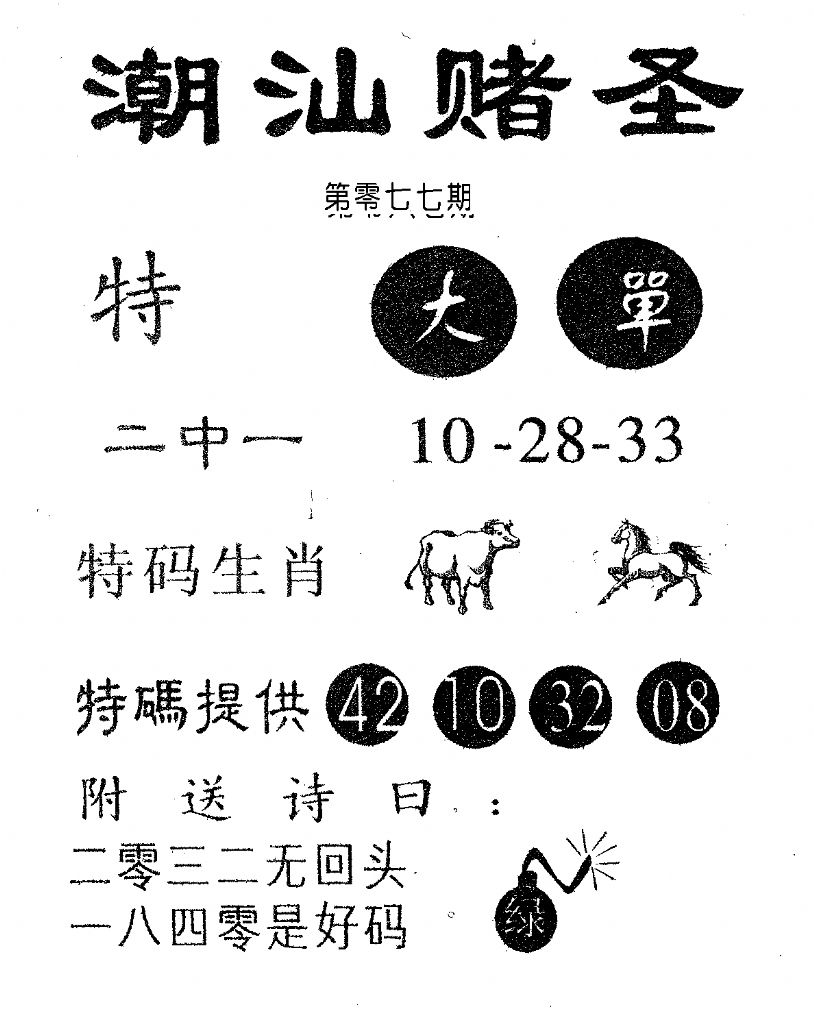 潮汕赌圣
第零七七期
特 大 單
二中一 10-28-33
特码生肖
特碼提供 42 10 32 08
附送诗曰：
二零三二无回头
一八四零是好码
绿